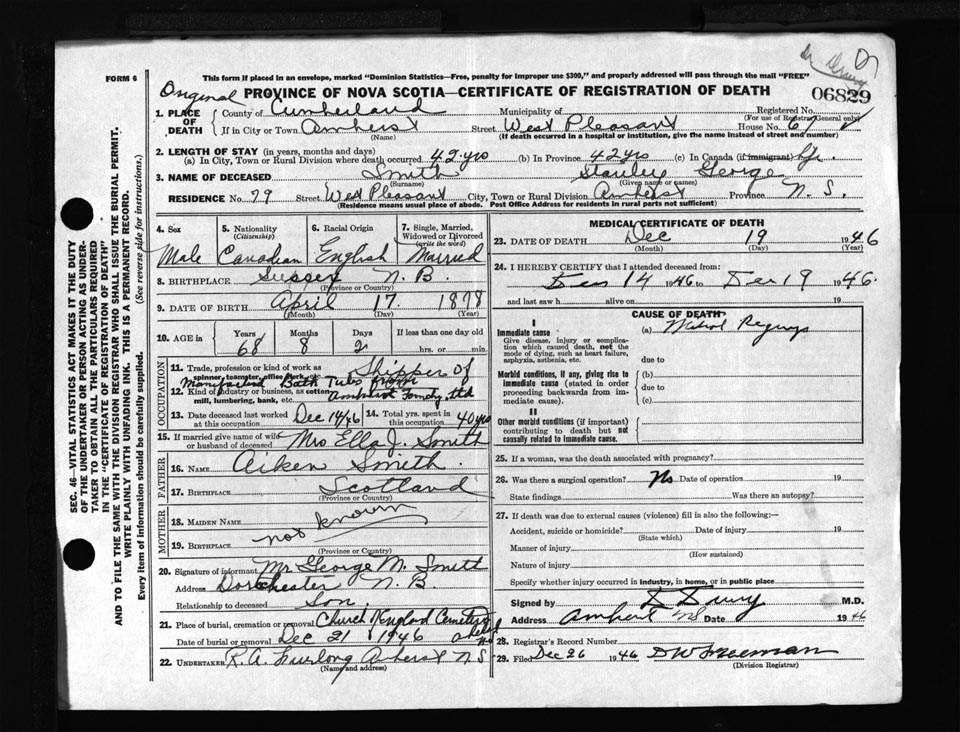 Dr Drury
FORM 6
This form if placed in an envelope, marked "Dominion Statistics—Free, penalty for improper use $300," and properly addressed will pass through the mail "FREE"
06829
Original
PROVINCE OF NOVA SCOTIA—CERTIFICATE OF REGISTRATION OF DEATH
1. PLACE OF DEATH
County of Cumberland Municipality of Registered No.
(For use of Registrar General only)
If in City or Town Amherst Street West Pleasant House No. 61
(Name) (If death occurred in a hospital or institution, give the name instead of street and number)
2. LENGTH OF STAY (in years, months and days)
(a) In City, Town or Rural Division where death occurred 42 yrs (b) In Province 42 yrs (c) In Canada (if immigrant) Life
3. NAME OF DECEASED Smith Stanley George
(Surname) (Given name or names)
RESIDENCE No. 79 Street West Pleasant City, Town or Rural Division Amherst Province N.S.
(Residence means usual place of abode. Post Office Address for residents in rural parts not sufficient)
4. Sex 5. Nationality (Citizenship) 6. Racial Origin 7. Single, Married, Widowed or Divorced (write the word)
Male Canadian English Married
8. BIRTHPLACE Sussex N.B.
(Province or Country)
9. DATE OF BIRTH April 17. 1878
(Month) (Day) (Year)
10. AGE in Years Months Days If less than one day old
68 8 2 hrs. or min.
OCCUPATION
11. Trade, profession or kind of work as spinner, teamster, office clerk, etc. Shipper of
Bath Tubs
12. Kind of industry or business, as cotton mill, lumbering, bank, etc. Amherst Foundry Ltd
13. Date deceased last worked at this occupation Dec 14/46 14. Total yrs. spent in this occupation 40 yrs
15. If married give name of wife or husband of deceased Mrs Ella J. Smith
FATHER
16. NAME Aiken Smith
17. BIRTHPLACE Scotland
(Province or Country)
MOTHER
18. MAIDEN NAME
not known
19. BIRTHPLACE
(Province or Country)
20. Signature of informant Mr George M. Smith
Address Dorchester N.B.
Relationship to deceased Son
21. Place of burial, cremation or removal Church England Cemetery
Date of burial or removal Dec 21 1946
22. UNDERTAKER R.A. Furlong Amherst N.S.
(Name and address)
MEDICAL CERTIFICATE OF DEATH
23. DATE OF DEATH Dec 19 1946
(Month) (Day) (Year)
24. I HEREBY CERTIFY that I attended deceased from:
Dec 14 1946 to Dec 19 1946.
and last saw h alive on 19
CAUSE OF DEATH
I
Immediate cause (a) Mitral Regurg
Give disease, injury or complication which caused death, not the mode of dying, such as heart failure, asphyxia, asthenia, etc.
due to
Morbid conditions, if any, giving rise to immediate cause (stated in order proceeding backwards from immediate cause).
(b)
due to
(c)
II
Other morbid conditions (if important) contributing to death but not causally related to immediate cause.
25. If a woman, was the death associated with pregnancy?
26. Was there a surgical operation? No Date of operation 19
State findings Was there an autopsy?
27. If death was due to external causes (violence) fill in also the following:—
Accident, suicide or homicide? Date of injury 19
(State which)
Manner of injury
(How sustained)
Nature of injury
Specify whether injury occurred in industry, in home, or in public place
Signed by D Drury M.D.
Address Amherst NS Date 1946
28. Registrar's Record Number
29. Filed Dec 26 1946 DW Freeman
(Division Registrar)
SEC. 46—VITAL STATISTICS ACT MAKES IT THE DUTY
OF THE UNDERTAKER OR PERSON ACTING AS UNDER-
TAKER TO OBTAIN ALL THE PARTICULARS REQUIRED
IN THE "CERTIFICATE OF REGISTRATION OF DEATH"
AND TO FILE THE SAME WITH THE DIVISION REGISTRAR WHO SHALL ISSUE THE BURIAL PERMIT.
WRITE PLAINLY WITH UNFADING INK. THIS IS A PERMANENT RECORD.
Every item of information should be carefully supplied. (See reverse side for instructions.)